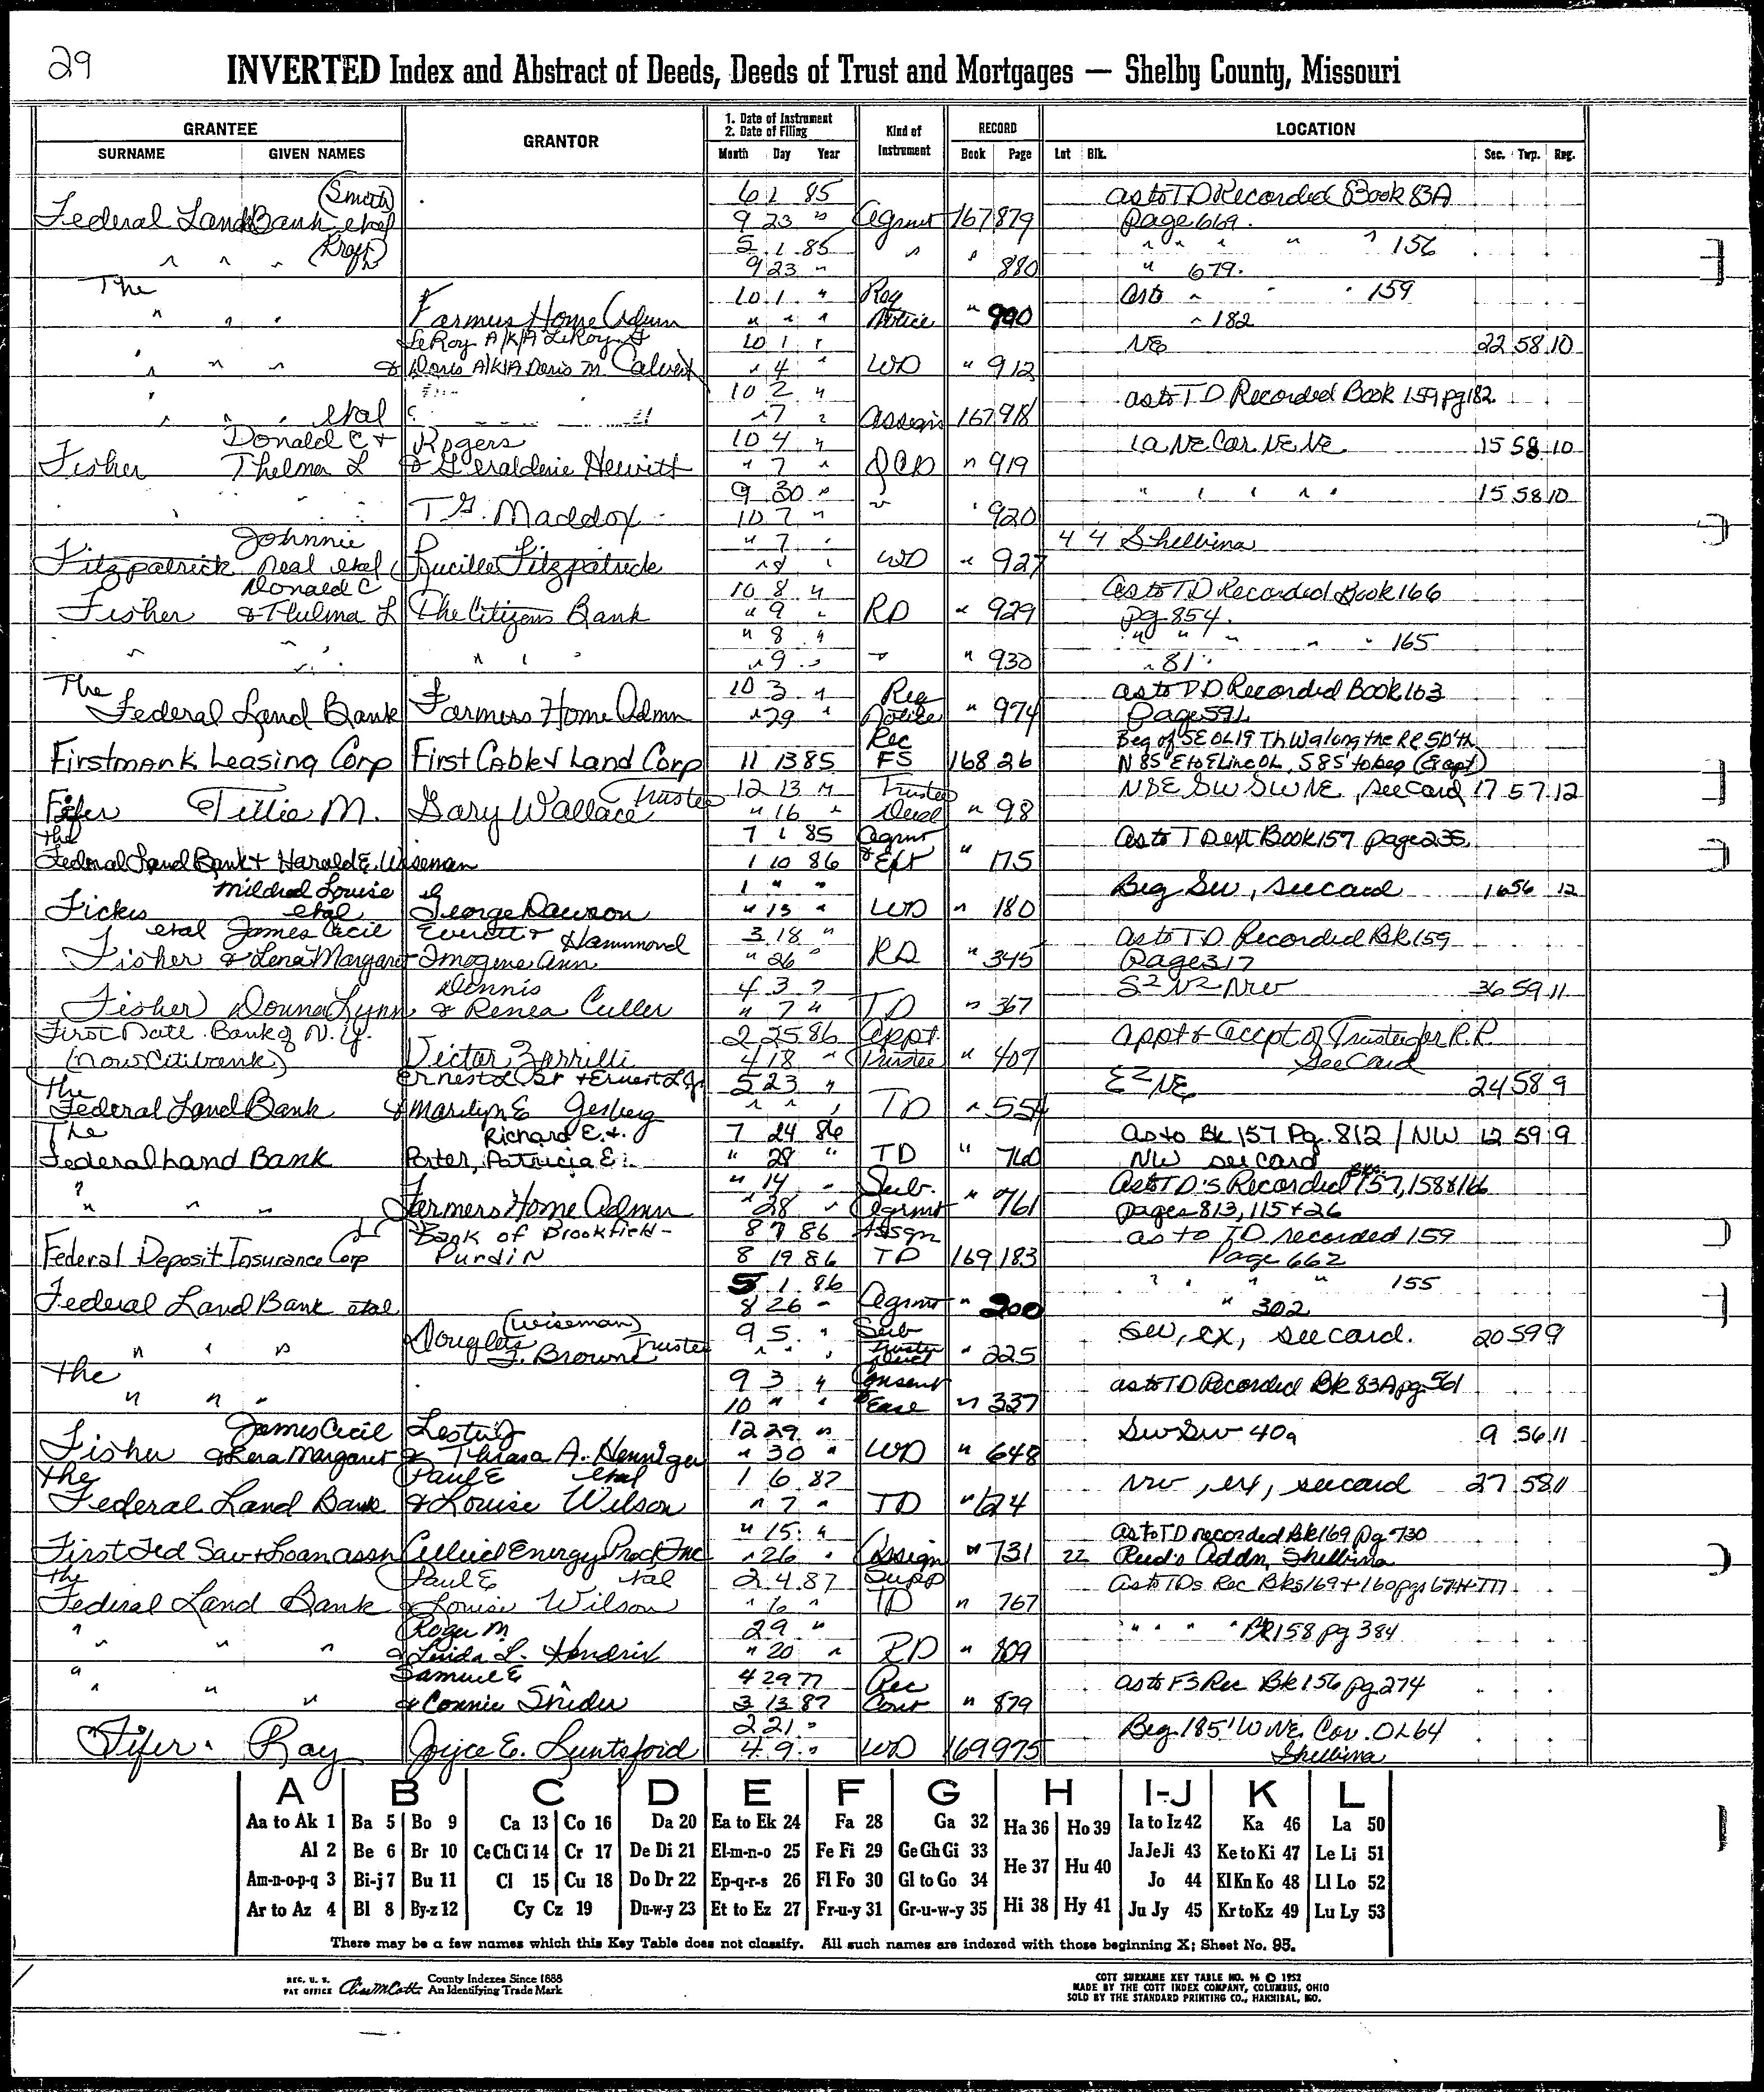 29
INVERTED Index and Abstract of Deeds, Deeds of Trust and Mortgages — Shelby County, Missouri
GRANTEE
SURNAME GIVEN NAMES
GRANTOR
1. Date of Instrument
2. Date of Filing
Month Day Year
Kind of
Instrument
RECORD
Book Page
LOCATION
Lot Blk. Sec. Twp. Rng.
(Smith) 6 1 85 as to TD Recorded Book 83A
Federal Land Bank etal 9 23 " Agrmt 167 879 Page 669.
5 1 85 " " " " " 156
" " " 9 23 " " " 880 " 679.
The 10 1 " Req as to " " " 159
" " " Farmers Home Admn " " " Notice " 900 " 182
LeRoy A/K/A LeRoy G 10 1 " NE 22 58 10
" " " & Doris A/K/A Doris M. Calvert " 4 " WD " 912
10 2 " as to TD Recorded Book 159 pg 182.
" " " etal " 7 " Assign 167 918
Donald C + Rogers 10 4 " 1a NE Cor NE NE 15 58 10
Fisher Thelma L & Geraldine Hewitt " 7 " QCD " 919
9 30 " " " " " " 15 58 10
" " " T. G. Maddox 10 7 " " " 920
Johnnie " 7 " 4 4 Shelbina
Fitzpatrick Neal etal Lucille Fitzpatrick " 8 " WD " 927
Donald C 10 8 " as to TD Recorded Book 166
Fisher & Thelma L The Citizens Bank " 9 " RD " 929 pg 854.
" 8 " " " " " " 165
" " " " " " " 9 " " " 930 " 81.
The 10 3 " Req as to DD Recorded Book 163
Federal Land Bank Farmers Home Admn " 29 " Notice " 974 Page 591
Rec Beg of SE OL 19 Th W along the RR 50' th
Firstmark Leasing Corp First Cable & Land Corp 11 13 85 FS 168 26 N 85' E to E Line OL, S 85' to beg
Trustee 12 13 " Trustee N 3E SW SW NE, see card 17 57 12
Fifer Tillie M. Gary Wallace " 16 " Deed " 98
The 7 1 85 Agrmt as to T D ext Book 157 page 235
Federal Land Bank & Harold E. Wiseman 1 10 86 & Ext " 175
Mildred Louise 1 " " Beg SW, see card 16 56 12
etal George Dawson " 13 " WD " 180
etal James Cecil Everett & Hammond 3 18 " as to TD Recorded Bk 159
Fisher & Lena Margaret Imogene Ann " 26 " RD " 345 Page 317
Dennis 4 3 " S2 N2 NW 36 59 11
Fisher Donna Lynn & Renea Culler " 7 " TD " 367
First Natl. Bank of N.Y. 2 25 86 Appt. Appt & Accpt of Trustee for R.R.
(Now Citibank) Victor Zarrilli 4 18 " Trustee " 409 See Card
The Ernest L Sr + Ernest L Jr 5 23 " E2 NE 24 58 9
Federal Land Bank & Marilyn E Gesberg " " " TD " 554
The Richard E. & 7 24 86 as to Bk 157 Pg. 812 / NW 12 59 9
Federal Land Bank Porter, Patricia E. " 28 " TD " 760 NW see card
" 14 " Sub. as to TD's Recorded Bks. 157, 158 & 166
" " " Farmers Home Admn " 28 " Agrmt " 761 pages 813, 115 + 26
Bank of Brookfield- 8 7 86 Assgn as to TD recorded 159
Federal Deposit Insurance Corp Purdin 8 19 86 TD 169 183 Page 662
5 1 86 " " " " 155
Federal Land Bank etal 8 26 " Agrmt " 200 " 302
(Wiseman) 9 5 " Sub SW, ex, see card. 20 59 9
" " " Douglas F. Browne Trustee " " " Trustee Deed " 225
The 9 3 " Consent as to TD Recorded Bk 83A pg. 561
" " " 10 " " Ease " 337
James Cecil Lester J 12 29 " SW SW 40a 9 56 11
Fisher & Lena Margaret & Thresa A. Henniger " 30 " WD " 648
The Paul E etal 1 6 87 NW, ex, see card 27 58 11
Federal Land Bank & Louise Wilson " 7 " TD " 674
" 15 " as to TD recorded Bk 169 pg 730
First Fed Sav & Loan Assn Allied Energy Prod Inc " 26 " Assign " 731 22 Reed's Addn, Shelbina
The Paul E etal 2 4 87 Supp as to TDs Rec Bks 169 + 160 pgs 674 + 777
Federal Land Bank & Louise Wilson " 6 " TD " 767
Roger M. 2 9 " " " " " Bk 158 pg 384
" " " & Linda L. Hendrix " 20 " RD " 809
Samuel E 4 29 77 Rec as to FS Rec Bk 156 pg 274
" " " & Connie Snider 3 13 87 Cont " 879
2 21 " Beg. 185' W NE Cor. OL 64
Fifer Ray Joyce E. Luntsford 4 9 " WD 169 975 Shelbina
A B C D E F G H I-J K L
Aa to Ak 1 Ba 5 Bo 9 Ca 13 Co 16 Da 20 Ea to Ek 24 Fa 28 Ga 32 Ha 36 Ho 39 Ia to Iz 42 Ka 46 La 50
Al 2 Be 6 Br 10 Ce Ch Ci 14 Cr 17 De Di 21 El-m-n-o 25 Fe Fi 29 Ge Gh Gi 33 He 37 Hu 40 Ja Je Ji 43 Ke to Ki 47 Le Li 51
Am-n-o-p-q 3 Bi-j 7 Bu 11 Cl 15 Cu 18 Do Dr 22 Ep-q-r-s 26 Fl Fo 30 Gl to Go 34 Jo 44 Kl Kn Ko 48 Ll Lo 52
Ar to Az 4 Bl 8 By-z 12 Cy Cz 19 Du-w-y 23 Et to Ez 27 Fr-u-y 31 Gr-u-w-y 35 Hi 38 Hy 41 Ju Jy 45 Kr to Kz 49 Lu Ly 53
There may be a few names which this Key Table does not classify. All such names are indexed with those beginning X; Sheet No. 95.
REG. U. S. PAT OFFICE County Indexes Since 1888
An Identifying Trade Mark
COTT SURNAME KEY TABLE NO. 96 © 1952
MADE BY THE COTT INDEX COMPANY, COLUMBUS, OHIO
SOLD BY THE STANDARD PRINTING CO., HANNIBAL, MO.